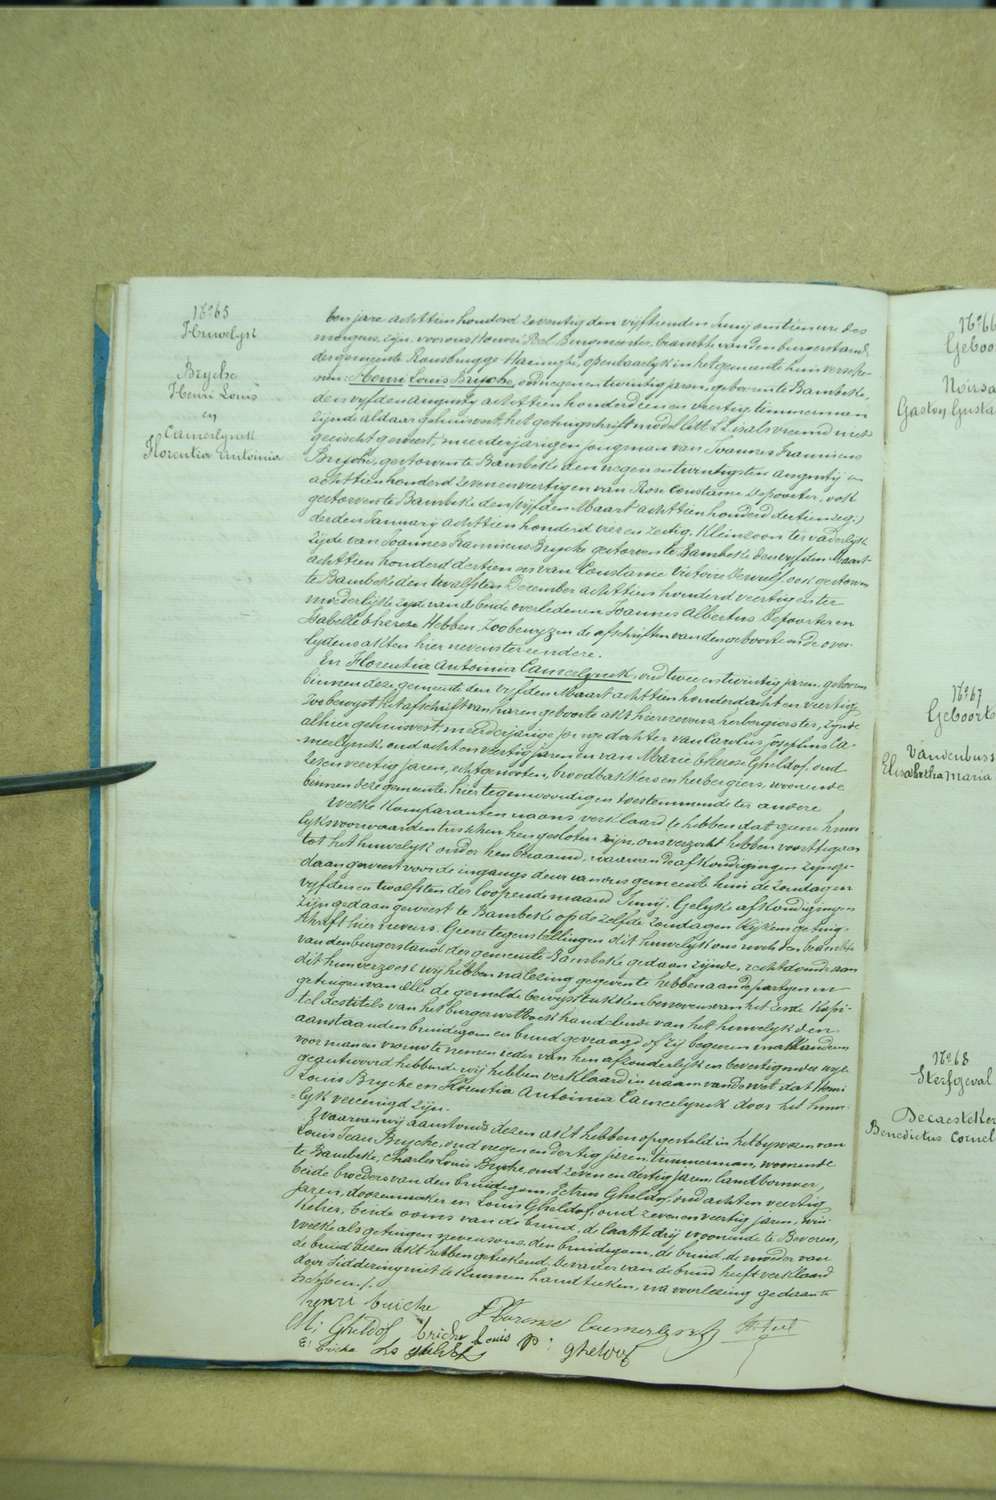 N° 65
Huwelijk
Bryche
Henri Louis
en
Camerlynck
Florentia Antoinia
ten jare achttien honderd zeventig den vijftienden Juny om tien ure des
morgens, zijn voor ons Burgmeester, beambte van den burgerstand
der gemeente Rousbrugge-Haringhe, openbaarlijk in het gemeente huis versche-
nen: Henri Louis Bryche, oud negen en twintig jaren, geboren te Bambeke,
den vijfden augusty achttien honderd een en veertig, timmerman
zijnde aldaar gehuisvest, het getuigschrift als vreemd niet
geeischt geweest, meerderjarigen jongman van Joannes Franciscus
Bryche, gestorven te Bambeke den negen en twintigsten augusty
achttien honderd zeven en veertig en van Rose Constance Depoorter, ook
gestorven te Bambeke den vijfden Maart achttien honderd dertien
derden January achttien honderd vier en zestig. Kleinzoon ter vaderlijke
zijde van Joannes Franciscus Bryche gestorven te Bambeke den vijfden Maart
achttien honderd dertien en van Constance Victoire ook gestorven
te Bambeke den twalfsten December achttien honderd veertig en ter
moederlijke zijde van de beide overledenen Joannes Albertus Depoorter en
Isabelle Hebben, zoo bewyzen de afschriften van den geboorte en de over-
lydens akten hier nevens ter eendere.
En Florentia Antoinia Camerlynck, oud twee en twintig jaren, geboren
binnen deze gemeente den vijfden Maart achttien honderd acht en veertig
zoo bewyst het afschrift van haren geboorte akt hier nevens, herbergierster, zijnde
alhier gehuisvest meerderjarige jonge dochter van Carolus Josephus Ca-
merlynck oud acht en veertig jaren en van Marie Therese Gheldof, oud
zes en veertig jaren, echtgenooten, broodbakkers en herbergiers, woonende
binnen deze gemeente, hier tegenwoordig en toestemmende ter andere
Welke komparanten na ons verklaard te hebben dat geene huwe
lyks voorwaarden tusschen hen gesloten zijn, ons verzocht hebben voort te gaan
tot het huwelijk onder hen beraamd, waarvan de afkondigingen zijn ge-
daan geweest voor de ingangs deur van ons gemeente huis de zondagen
vijfden en twalfsten der loopende maand Juny. Gelijke afkondigingen
zijn gedaan geweest te Bambeke op de zelfde zondagen blijkens getuig-
schrift hier nevens. Geene tegenstellingen dit huwelijk ons noch den beambte
van den burgerstand der gemeente Bambeke gedaan zijnde, recht doende aan
dit hun verzoek wij hebben na lezing gegeven te hebben aan de partyen en
getuigen van alle de gemelde bewysstukken benevens van het zesde kapi-
tel des titels van het burger wetboek handelende van het huwelijk den
aanstaanden bruidegom en bruid gevraagd of zij begeeren malkanderen
voor man en vrouw te nemen ieder van hen afzonderlijk en bevestigender wyze
geantwoord hebbende wij hebben verklaard in naam van de wet dat Henri
Louis Bryche en Florentia Antoinia Camerlynck door het huwe-
lyk vereenigd zijn.
Waarvan wij aanstonds dezen akt hebben opgesteld in het bywezen van
Louis Jean Bryche, oud negen en dertig jaren, timmerman, woonende
te Bambeke, Charles Louis Bryche, oud zeven en dertig jaren, landbouwer,
beide broeders van den bruidegom, Petrus Gheldof, oud acht en veertig
jaren, en Louis Gheldof, oud zeven en veertig jaren, win-
kelier, beide ooms van de bruid, de laatste drij woonende te Beveren,
welke als getuigen nevens ons, den bruidegom, de bruid, de moeder van
de bruid dezen akt hebben geteekend. De vader van de bruid heeft verklaard
door sidderinge niet te kunnen handteeken, na voorlezing gedaan te
hebben./.
henri briche
Florence Camerlynck
M: Gheldof
briche Louis
P: gheldof
N° 66
Geboor
Noirsa
Gaston Gusta
N° 67
Geboorte
Vandenbuss
Elisabetha Maria
N° 68
Sterfgeval
Decaesteker
Benedictus Cornel